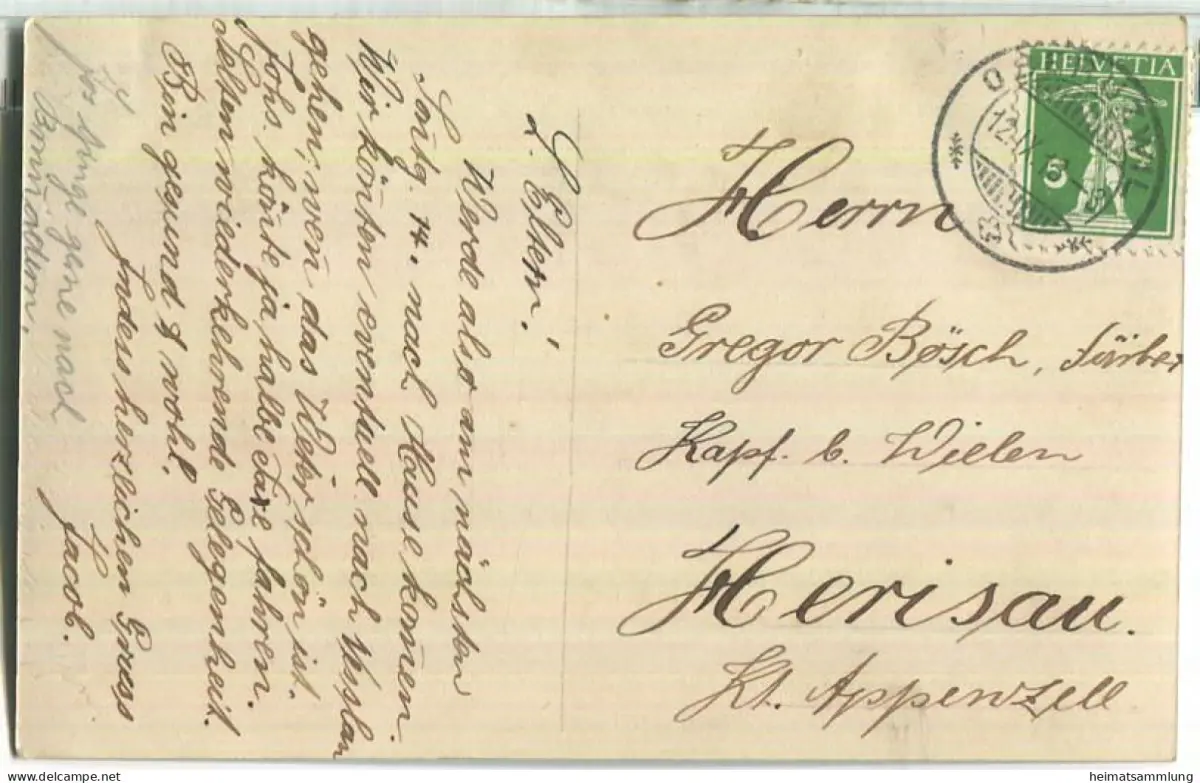 L. Eltern!
Werde also am nächsten
Sontg. 14. nach Hause kom̅en.
Wir kön̅ten eventuell nach
gehen, wen̅ das Wetter schön ist.
Johs. kön̅te ja halbe Taxe fahren.
Selten wiederkehrende Gelegenheit.
Bin gesund & wohl.
Indess herzlichen Gruss
Jacob.
gerne nach
Herrn
Gregor Bösch, Färber
Kapf b. Wielen
Herisau.
Kt. Appenzell
HELVETIA
5
12.IX.
heimatsammlung